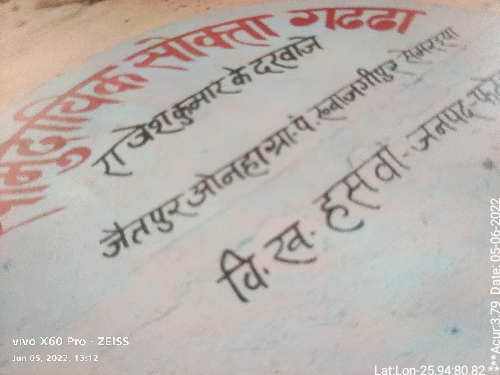 सामुदायिक सोक्ता गढढा
राजेश कुमार के दरवाजे
जैतपुर ओनहा ग्रा.पं
वि.ख. हसवां- जनपद-
vivo X60 Pro - ZEISS
Jun 05, 2022, 13:12
Lat:Lon-25.94:80.82
Acur:3.79 Date:05-06-2022